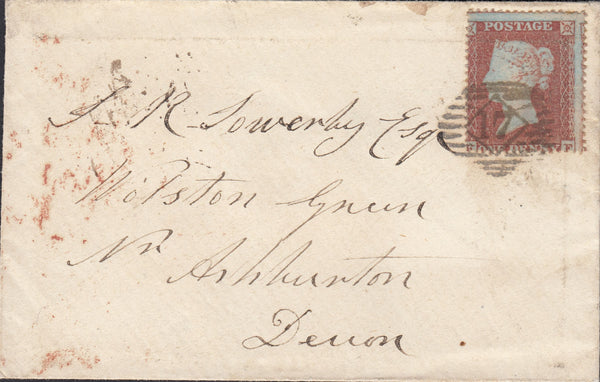 POSTAGE
J. R. Sowerby Esq
17
Wolston Green
Nr Ashburton
Devon